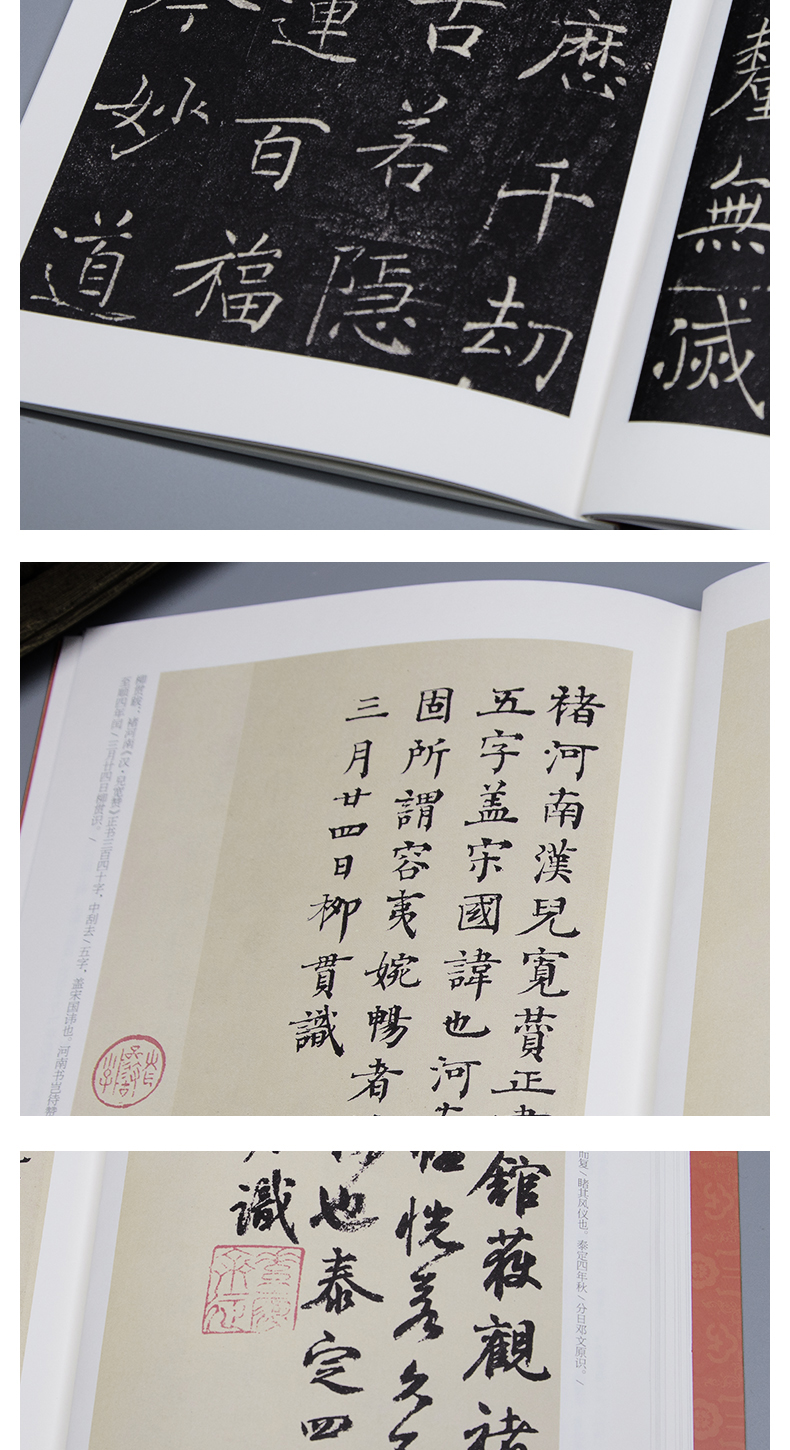 釐無滅
厯千劫
古若隱
運百福
今妙道
褚河南漢兒寬贊正書
五字盖宋國諱也河南
固所謂容夷婉暢者
三月廿四日柳貫識
柳贯跋：褚河南《汉·兒宽赞》正书三百四十字，中刮去/五字，盖宋国讳也。河南书岂待赞
至顺四年闰/三月廿四日柳贯识。/
而复/睹其风仪也。泰定四年秋/分日邓文原识。/
館獲觀褚
恍若公
也泰定四
識